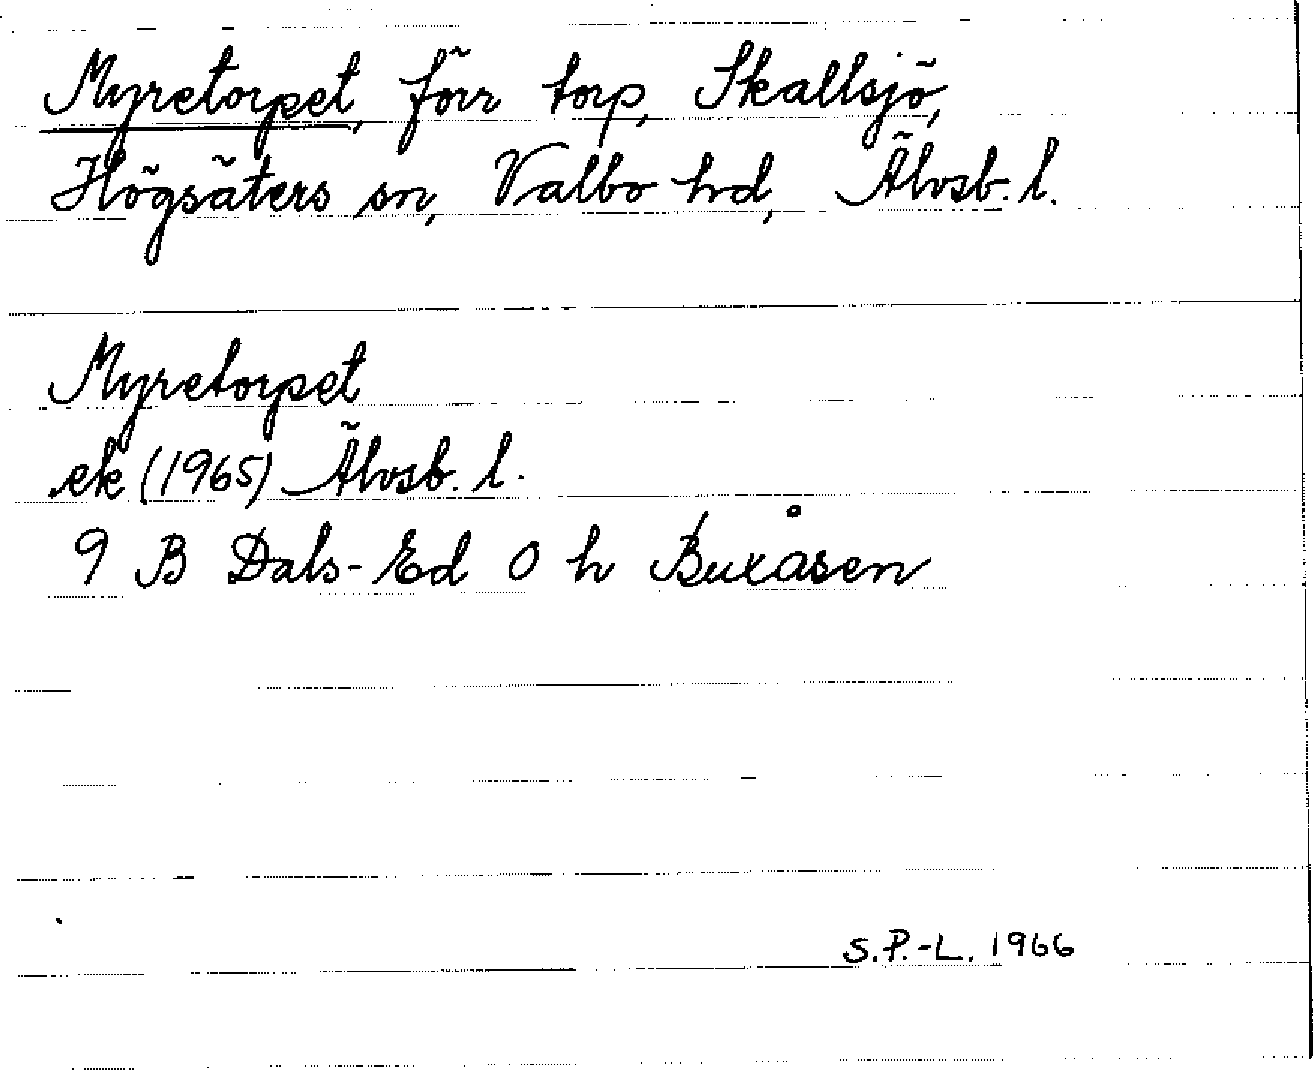 Myretorpet, förr torp, Skallsjö,
Högsäters sn, Valbo hd, Älvsb. l.
Myretorpet
ek (1965) Älvsb. l.
9 B Dals-Ed O h Buxåsen
S.P.-L. 1966